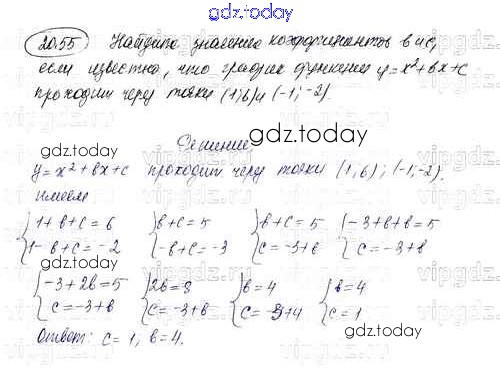 gdz.today
20.55 Найдите значение коэффициентов b и c,
если известно, что график функции y=x²+bx+c
проходит через точки (1;6) и (-1;-2).
gdz.today
Решение
gdz.today
y=x²+bx+c проходит через точки (1;6); (-1;-2).
имеем
{1+b+c=6 {b+c=5 {b+c=5 {-3+b+b=5
{1-b+c=-2 {-b+c=-3 {c=-3+b {c=-3+b
gdz.today
{-3+2b=5 {2b=8 {b=4 {b=4
{c=-3+b {c=-3+b {c=-3+4 {c=1
gdz.today
Ответ: c=1, b=4.
gdz.today